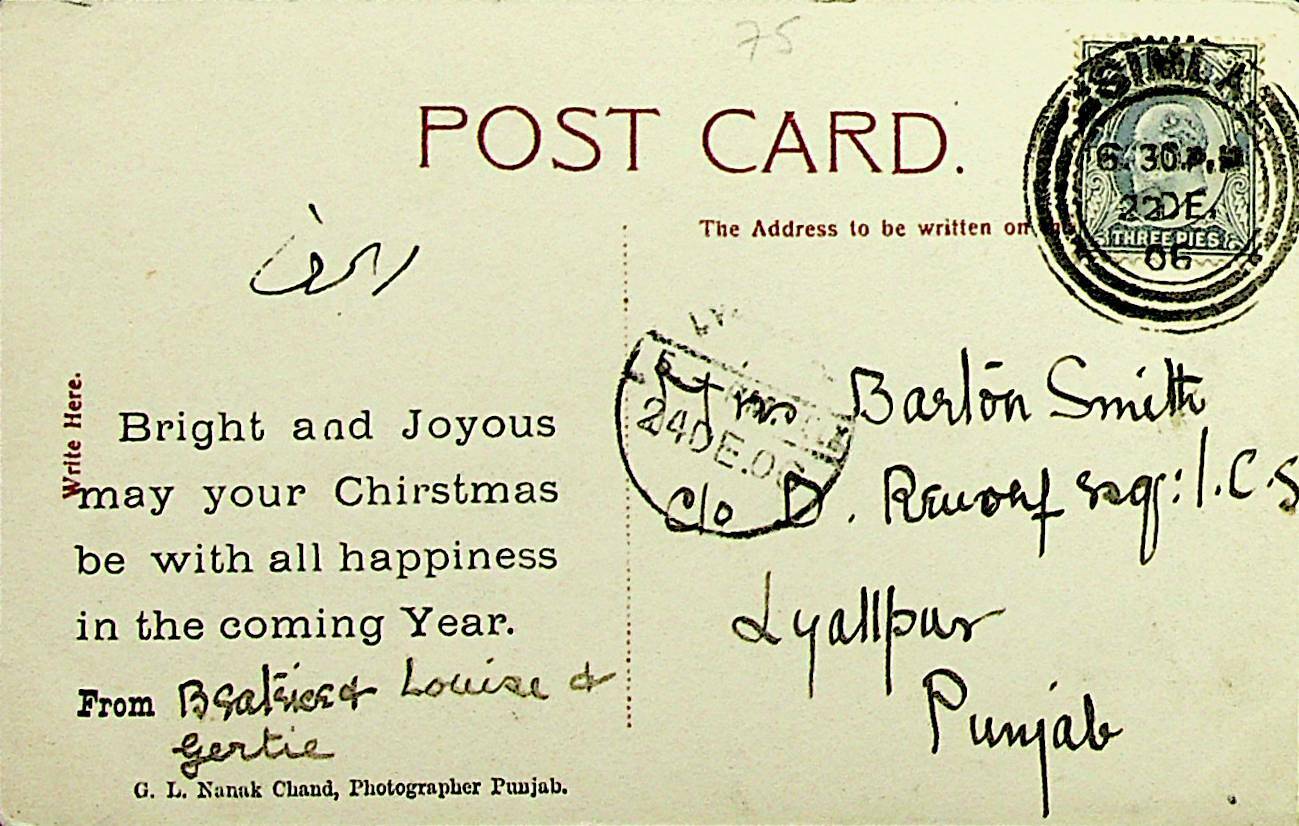 75
POST CARD.
The Address to be written on
SIMLA
6.30 P.M
22 DE.
06
THREE PIES
Write Here.
Bright and Joyous
may your Chirstmas
be with all happiness
in the coming Year.
From Beatrice & Louise &
Gertie
G. L. Nanak Chand, Photographer Punjab.
24 DE.06
Barton Smith
c/o D. Esqr: I.C.S
Lyallpur
Punjab